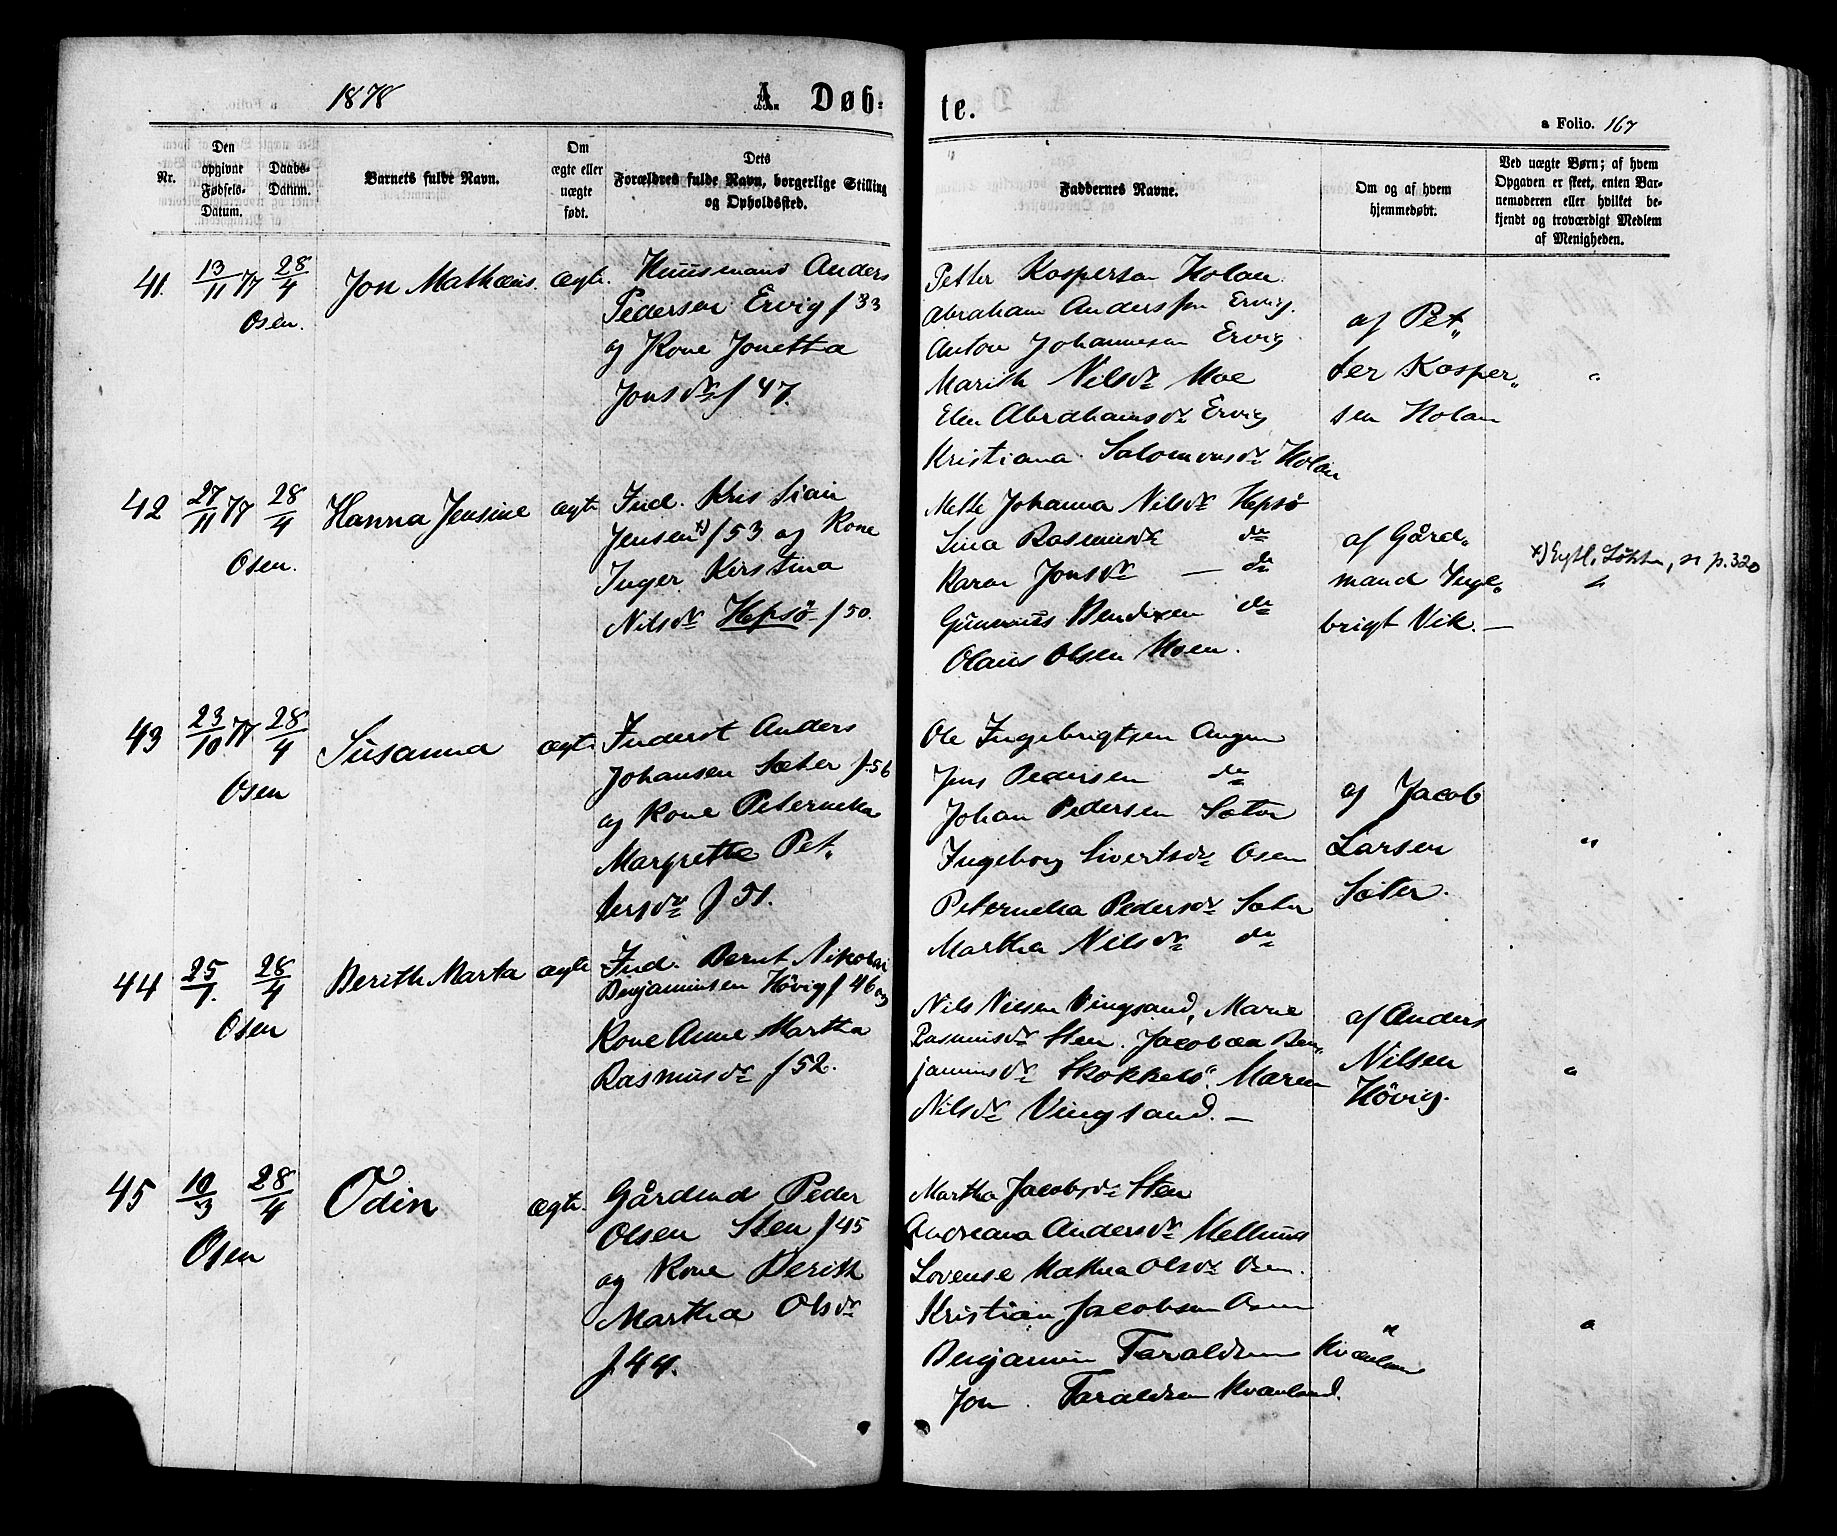 1878
A. Døb-
te.
a Folio. 167
Nr.
Den
opgivne
Fødsels-
Datum.
Daabs-
Datum.
Barnets fulde Navn.
Om
ægte eller
uægte
født.
Dets
Forældres fulde Navn, borgerlige Stilling
og Opholdssted.
Faddernes Navne.
Om og af hvem
hjemmedøbt.
Ved uægte Børn; af hvem
Opgaven er skeet, enten Bar-
nemoderen eller hvilket be-
kjendt og troværdigt Medlem
af Menigheden.
41. 13/11 77 28/4 Jon Mathæus. ægte.
Osen.
Huusmand Anders
Pedersen Ervig f 33
og Kone Jonetta
Jonsdr f 47.
Petter Kaspersen Holan.
Abraham Anderssen Ervig.
Anton Johannesen Ervig
Marith Nilsdr Moe
Elen Abrahamsdr Ervig
Kristiana Salomonsdr Holan
af Pet„
ter Kasper„
sen Holan
"
42 27/11 77 28/4 Hanna Jensine ægte
Osen.
Ind. Kristian
Jensen x) f 53 og Kone
Inger Kirstina
Nilsdr Hepsö f 50.
Mette Johanna Nilsdr Hepsö
Sina Rasmusdr do
Karen Jonsdr — do
Gunnerus Bendixen do
Olaus Olsen Moen.
af Gård„
mand Inge„
brigt Vik. —
x) Egtl. , se p. 320
"
43 23/10 77 28/4 Susanna ægte
Osen
Inderst Anders
Johansen Sæter f. 56
og Kone Peternella
Margrethe Pet„
tersdr f 51.
Ole Ingebrigtsen Angen
Jens Pedersen do
Johan Pedersen Sæter
Ingeborg Sivertsdr Osen
Peternella Pedersdr Sæter
Martha Nilsdr do
af Jacob
Larsen
Sæter.
"
44 25/1. 28/4 Berith Marta ægte
Osen
Ind. Bernt Nikolai
Benjaminsen Hövig f 46 og
Kone Anne Martha
Rasmusdr f 52.
Nils Nilsen Vingsand, Marie
Rasmusdr Sten. Jacobæa Ben„
jaminsdr Skokkelö. Maren
Nilsdr Vingsand. —
af Anders
Nilsen
Hövig.
"
45 19/3 28/4 Odin ægte.
Osen
Gårdmd Peder
Olsen Sten f 45
og Kone Berith
Martha Olsdr
f. 44.
Martha Jacobsdr Sten
Andreana Andersdr Mellum
Lovense Mathea Olsdr Osen.
Kristian Jacobsen Osen
Benjamin Taraldsen Kvænland
Jon Taraldsen Kvænland.
"
"